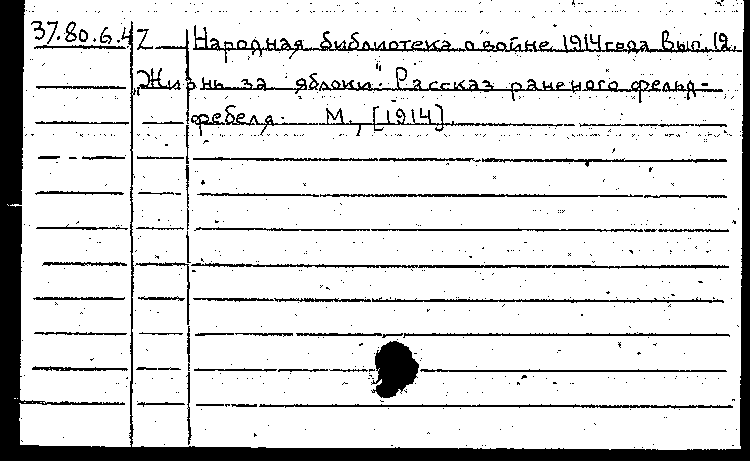 37.80.6.47 Народная библиотека о войне 1914 года Вып. 12.
„Жизнь за яблоки". Рассказ раненого фельд-
фебеля. М., [1914].